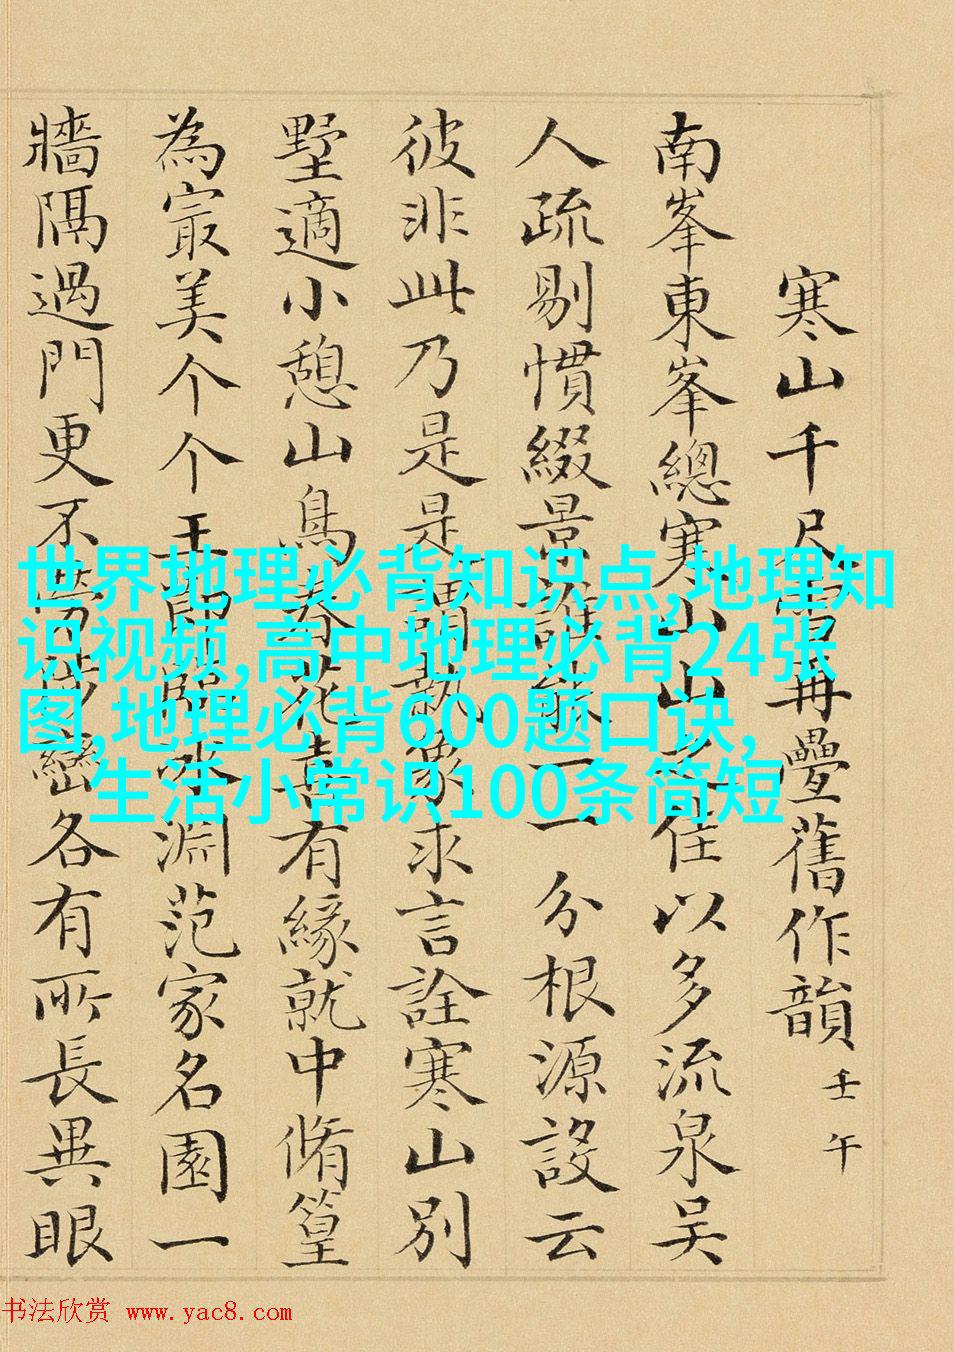 寒山千尺雪再疊舊作韻 壬午
南峯東峯總寒山山之佳以多流泉吴
人疏剔慣綴景誰能一一分根源設云
彼非此乃是是謂執象求言詮寒山別
墅適小憩山鳥春花喜有緣就中脩篁
為寂美个个玉臨冰淵范家名園一
牆隔過門更不勞陟巒各有所長異眼
世界地理必背知识点,地理知
识视频,高中地理必背24张
图,地理必背600题口诀,
生活小常识100条简短
书法欣赏 www.yac8.com